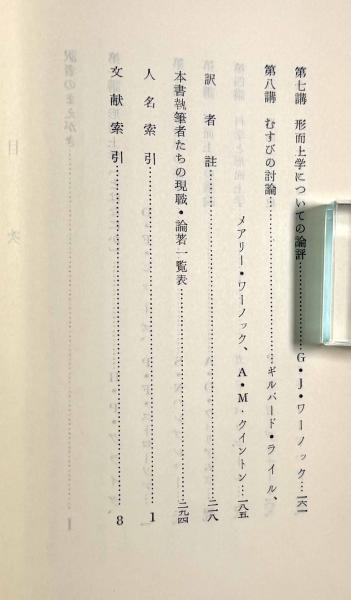 第七講　形而上学についての論評…………………G・J・ワーノック…一六一
第八講　むすびの討論………………………ギルバード・ライル、
メアリー・ワーノック、A・M・クイントン…一八五
訳者註……………………………………………二一八
本書執筆者たちの現職・論著一覧表……………………二九四
人名索引……………………………………………1
文献索引……………………………………………8
訳者のまえがき
目次